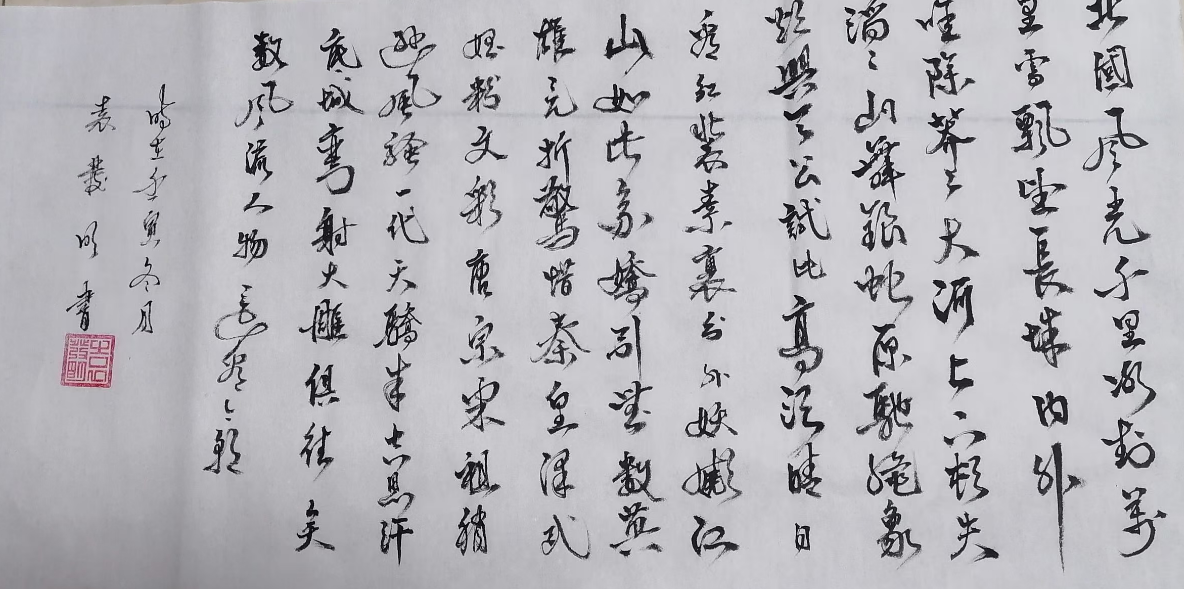 北國風光千里冰封萬
里雪飄望長城内外
唯除莽〻大河上下頓失
滔〻山舞銀蛇原馳象
欲與天公試比高須晴日
看紅裝素裹分外妖嬈江
山如此多嬌引無數英
雄竞折驚惜秦皇漢武
文彩唐宗宋祖稍
遜風騷一代天驕吉思汗
底城彎射大雕俱往矣
數風流人物還看今朝
時在壬寅冬月
袁發明書